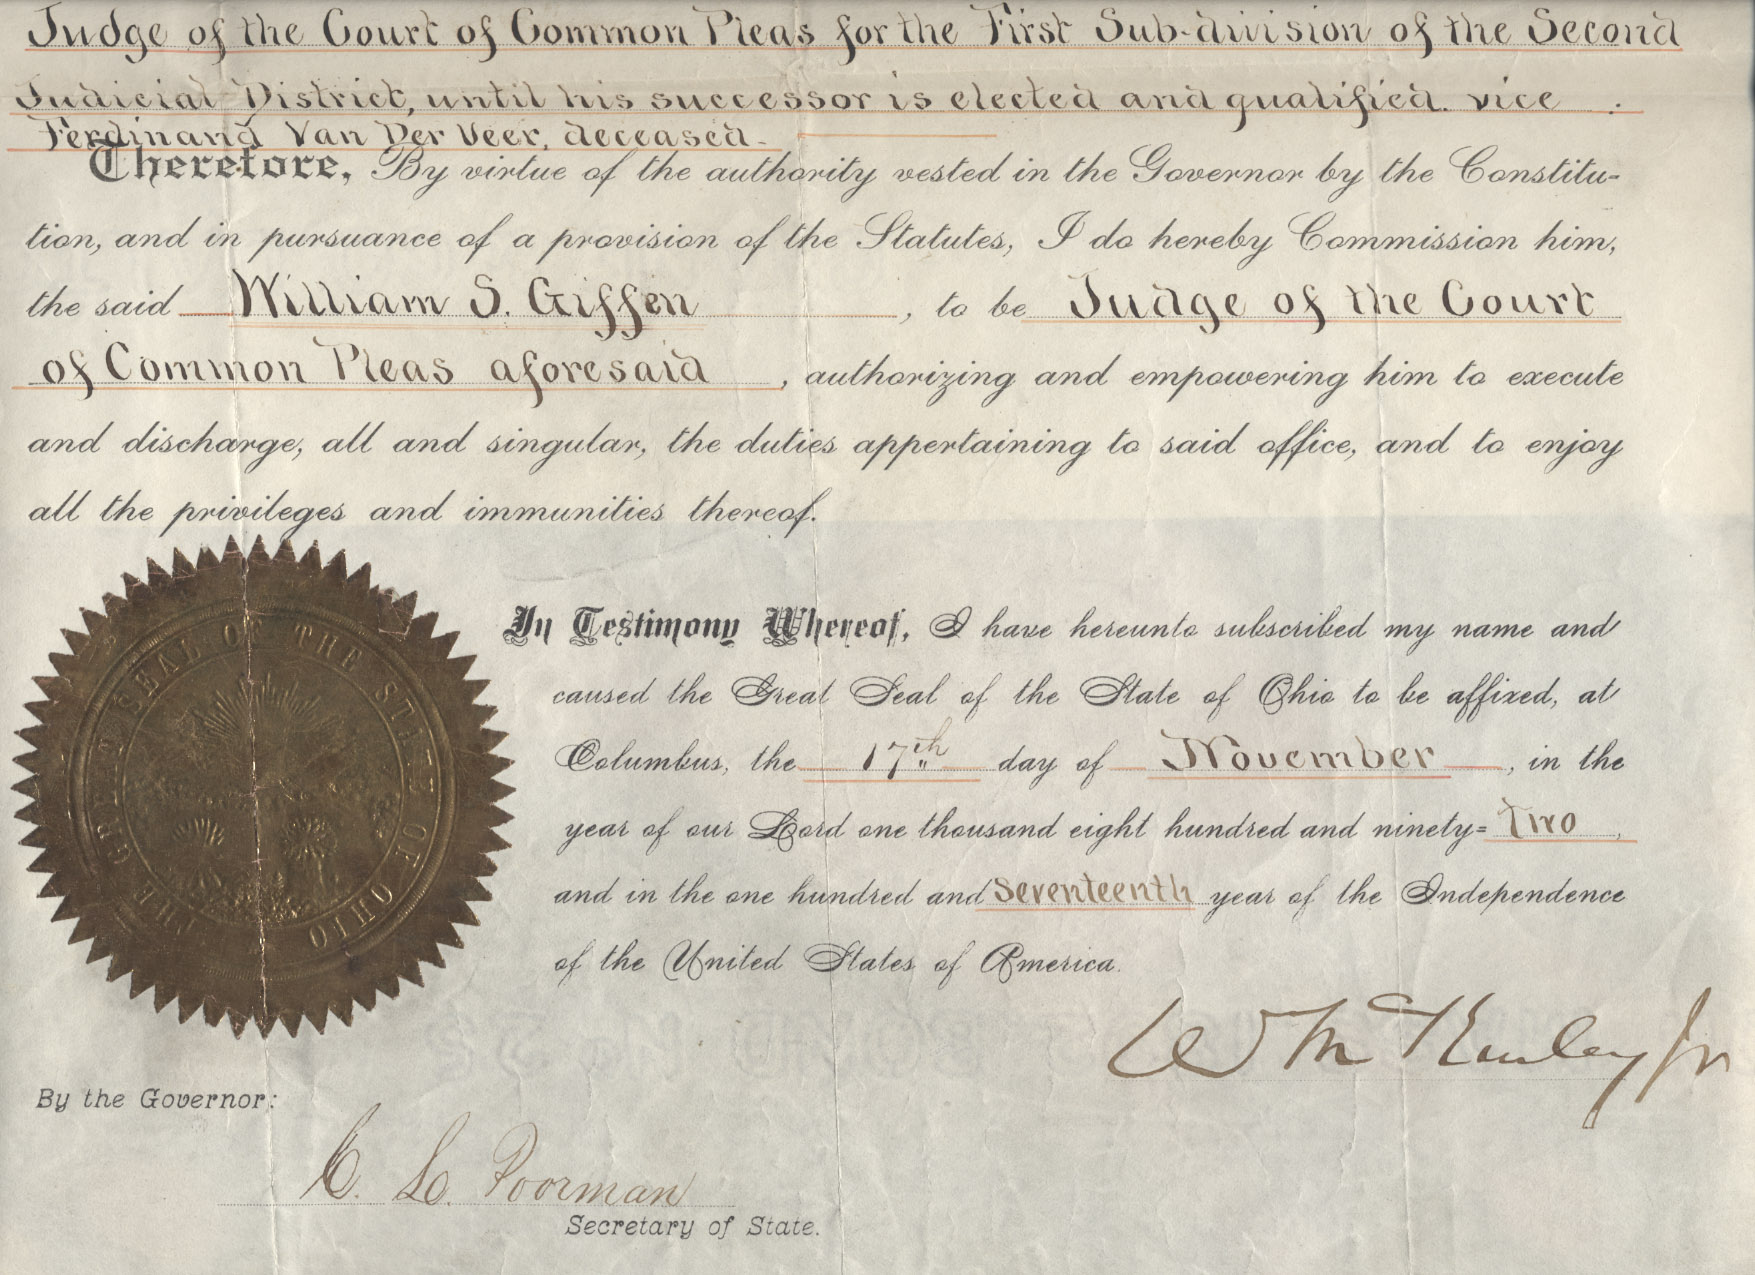 Judge of the Court of Common Pleas for the First Sub-division of the Second
Judicial District, until his successor is elected and qualified. vice
Ferdinand Van Der Veer, deceased.
Therefore, By virtue of the authority vested in the Governor by the Constitu-
tion, and in pursuance of a provision of the Statutes, I do hereby Commission him,
the said William S. Giffen, to be Judge of the Court
of Common Pleas aforesaid, authorizing and empowering him to execute
and discharge, all and singular, the duties appertaining to said office, and to enjoy
all the privileges and immunities thereof.
THE GREAT SEAL OF THE STATE OF OHIO
In Testimony Whereof, I have hereunto subscribed my name and
caused the Great Seal of the State of Ohio to be affixed, at
Columbus, the 17th day of November, in the
year of our Lord one thousand eight hundred and ninety-two,
and in the one hundred and seventeenth year of the Independence
of the United States of America.
Wm McKinley Jr
By the Governor:
C. L. Poorman
Secretary of State.